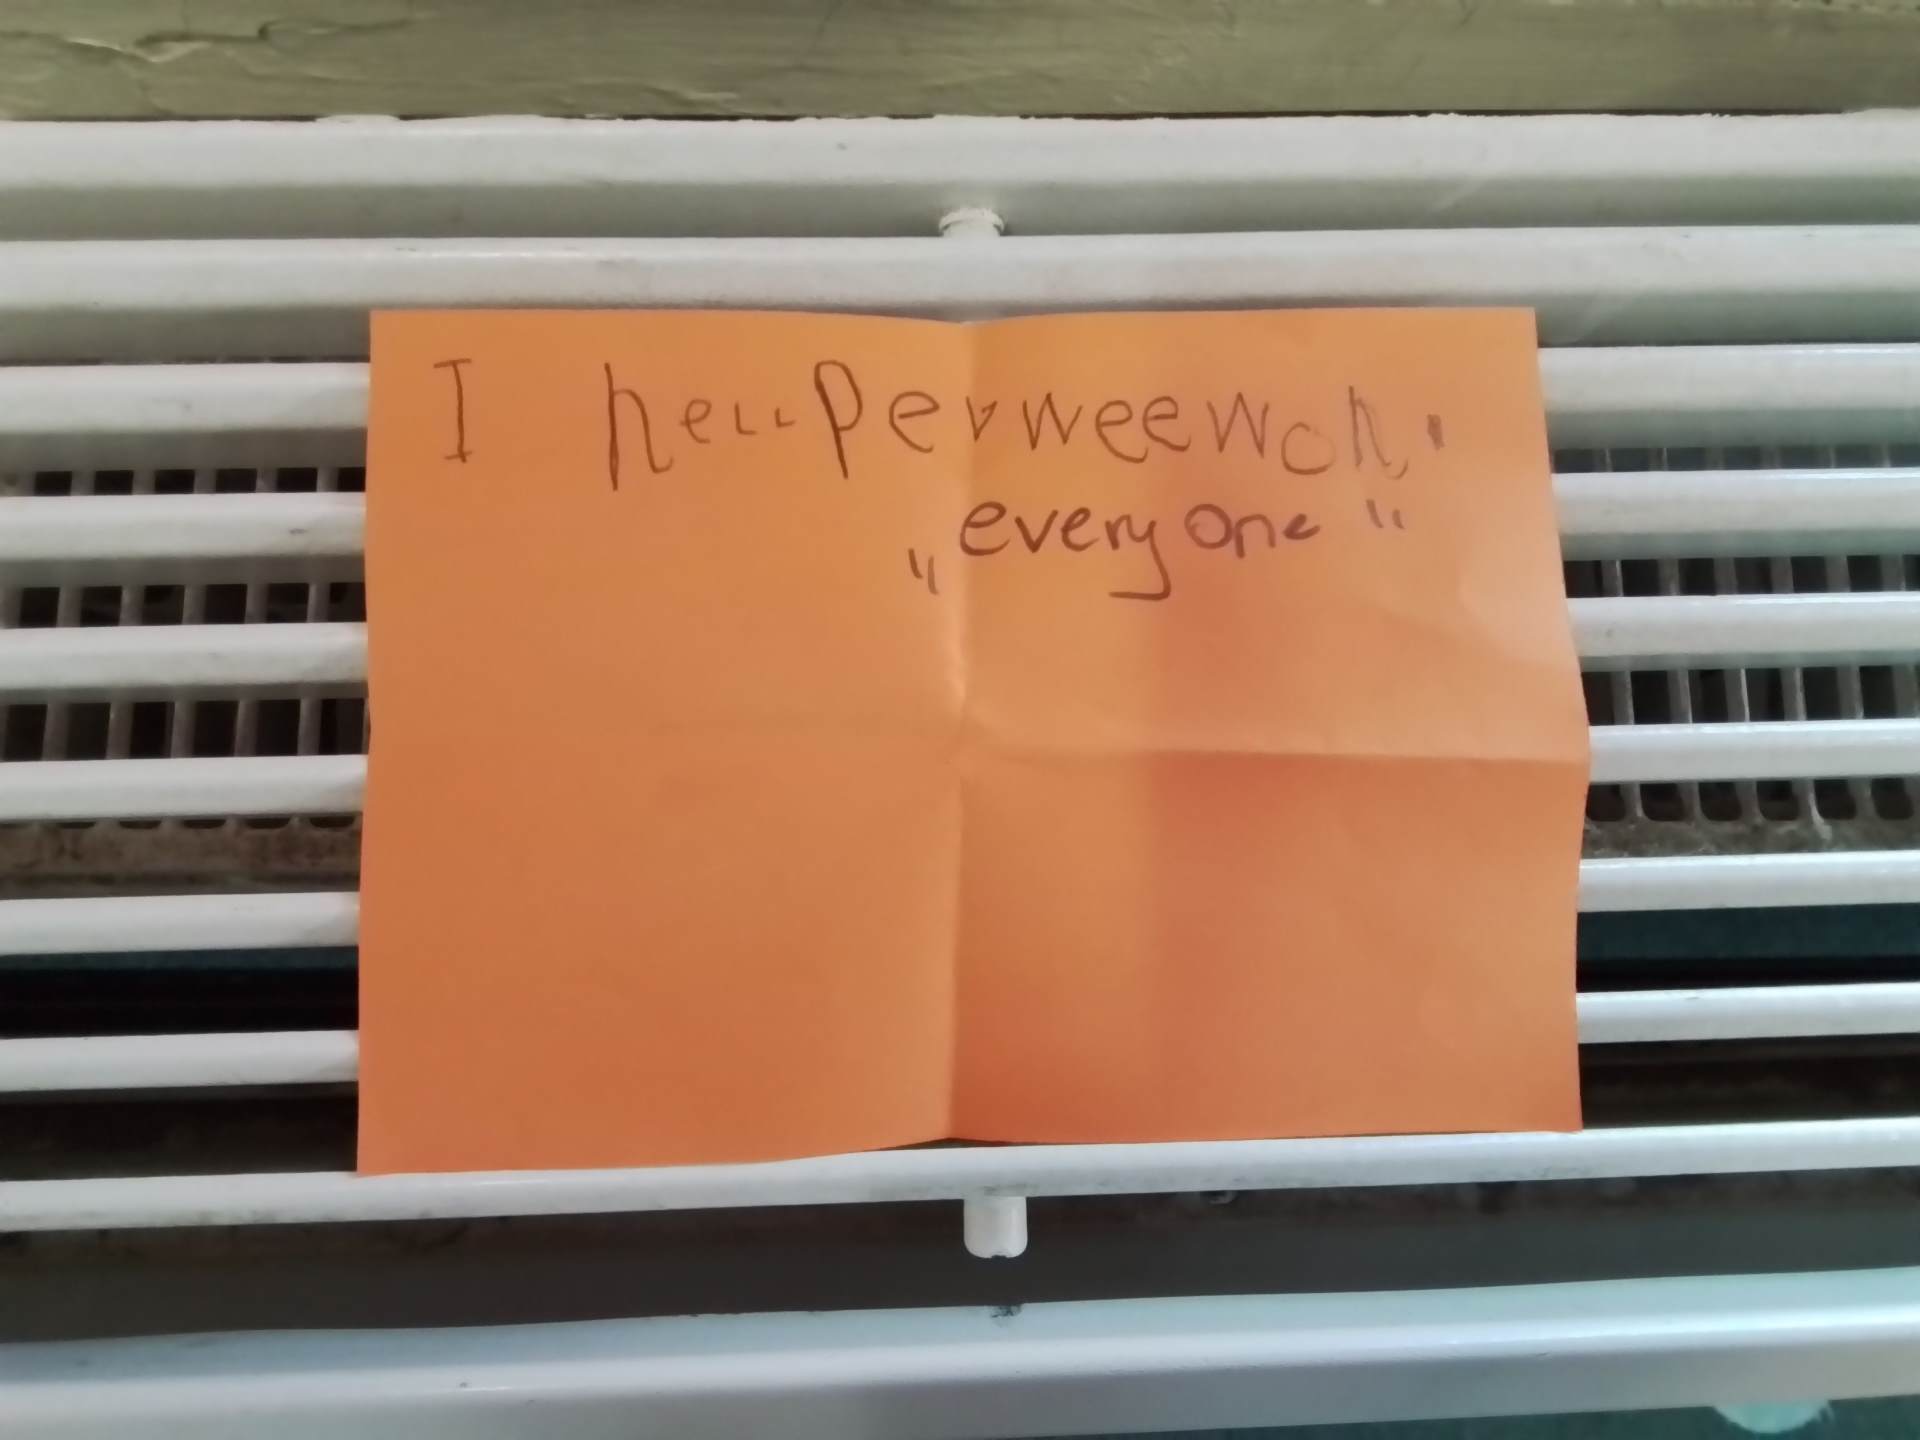 I hellPerweewon.
„everyone"